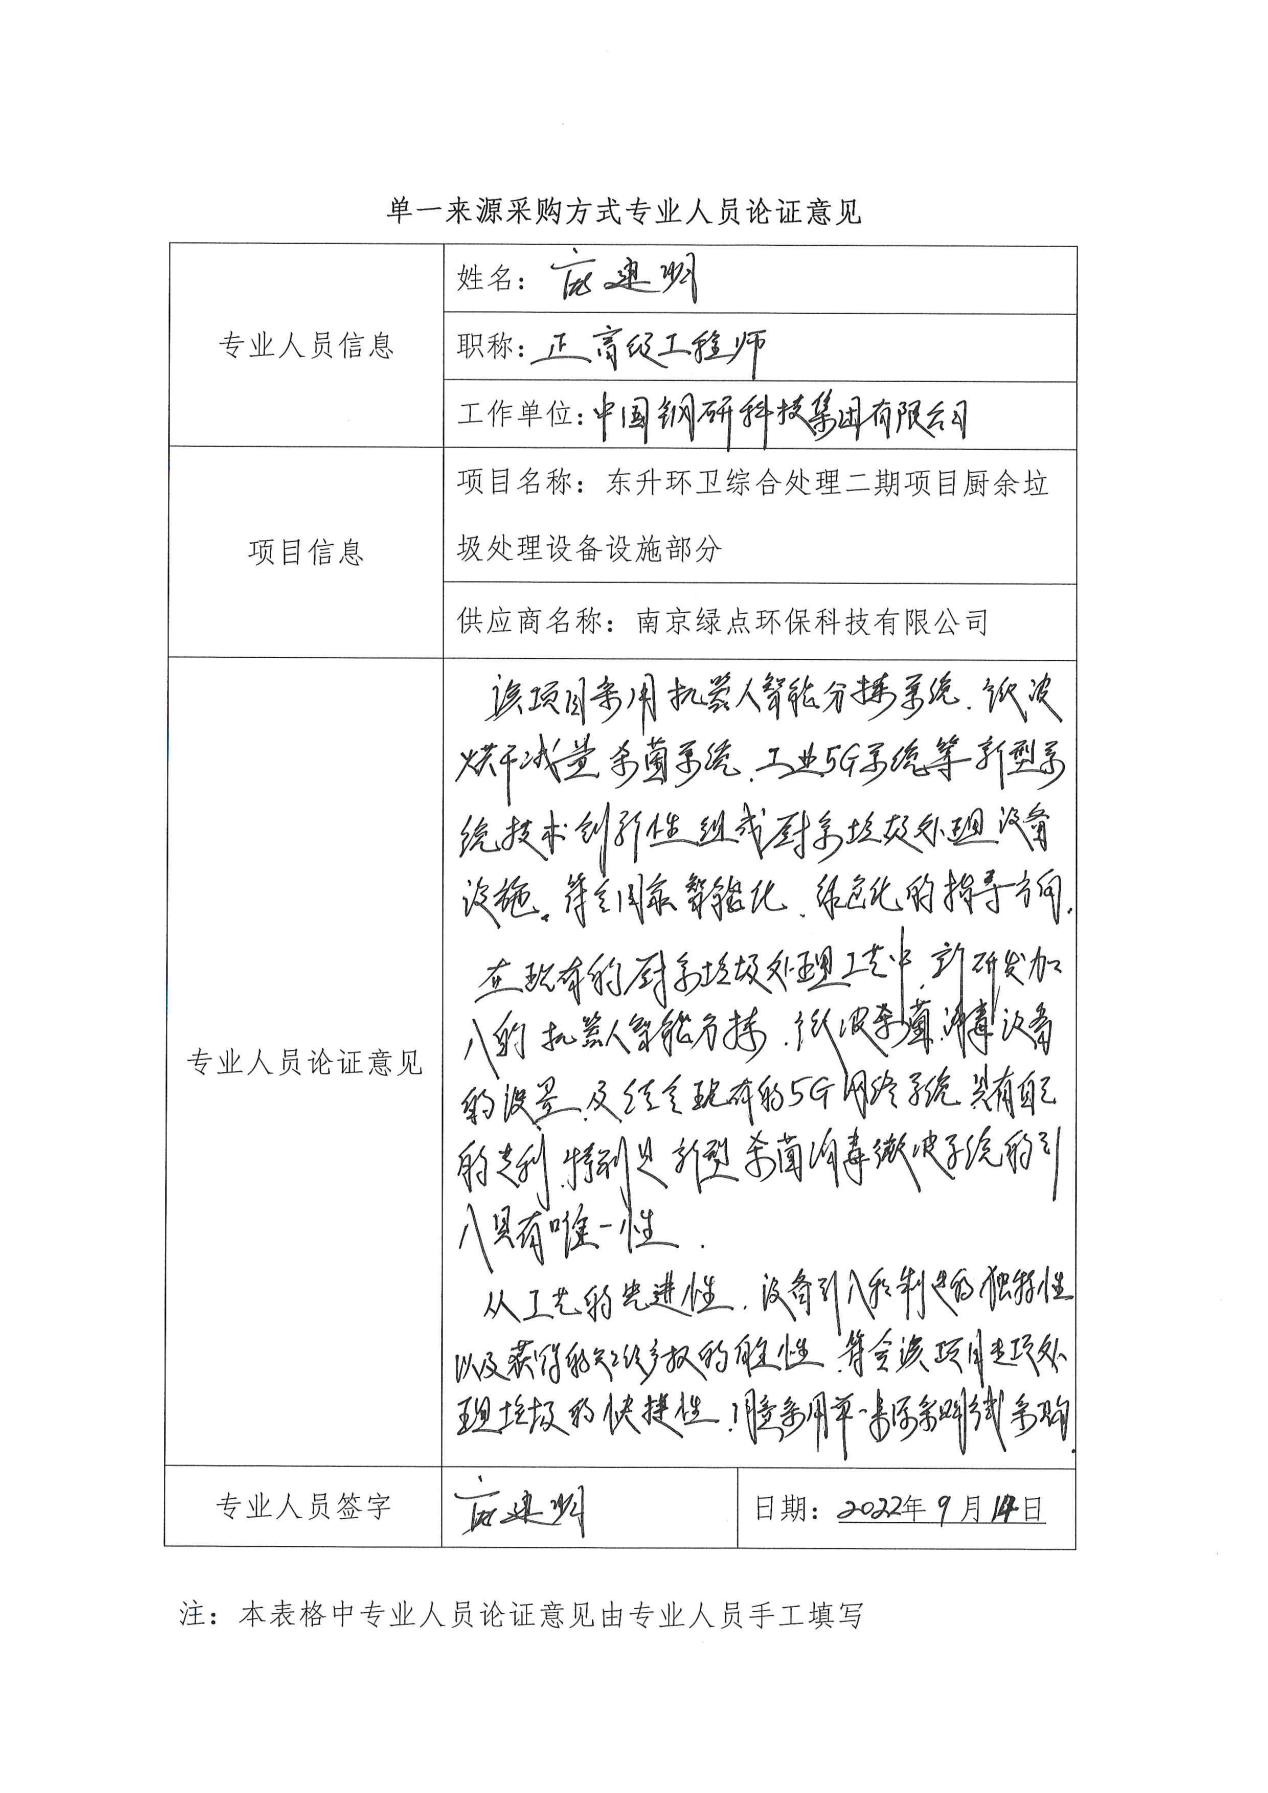 单一来源采购方式专业人员论证意见
专业人员信息
姓名：建明
职称：正高级工程师
工作单位：中国钢研科技集团有限公司
项目信息
项目名称：东升环卫综合处理二期项目厨余垃
圾处理设备设施部分
供应商名称：南京绿点环保科技有限公司
专业人员论证意见
该项目采用机器人智能分拣系统、微波
烘干减量杀菌系统、工业5G系统等新型系
统技术创新性组成厨余垃圾处理设备
设施。符合国家智能化、绿色化的指导方向。
在现有的厨余垃圾处理工艺中，新研发加
入的机器人智能分拣、微波杀菌消毒设备
的设置及结合现有的5G网络系统具有自己
的专利，特别是新型杀菌消毒微波系统的引
入具有唯一性。
从工艺的先进性、设备引入和制造的独特性
以及获得的知识产权的性，符合该项目专项处
理垃圾的快捷性，同意采用单一来源采购形式采购。
专业人员签字
建明
日期：2022年9月14日
注：本表格中专业人员论证意见由专业人员手工填写